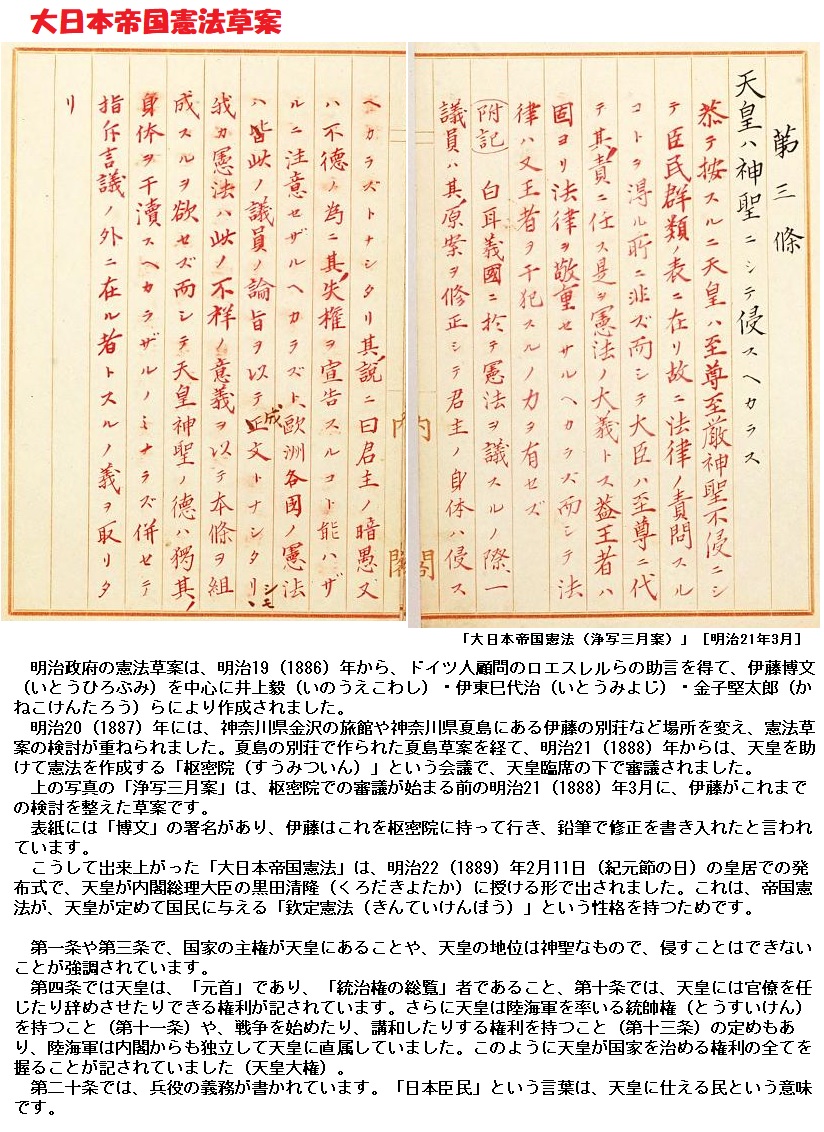 大日本帝国憲法草案
第三條
天皇ハ神聖ニシテ侵スヘカラス
恭テ按スルニ天皇ハ至尊至厳神聖不侵ニシ
テ臣民群類ノ表ニ在リ故ニ法律ノ責問スル
コトヲ得ル所ニ非ズ而シテ大臣ハ至尊ニ代
テ其責ニ任ス是ヲ憲法ノ大義トス蓋王者ハ
固ヨリ法律ヲ敬重セサルヘカラズ而シテ法
律ハ又王者ヲ干犯スルノ力ヲ有セズ
附記 白耳義國ニ於テ憲法ヲ議スルノ際一
議員ハ其原案ヲ修正シテ君主ノ身体ハ侵ス
ヘカラズトナシタリ其説ニ曰君主ノ暗愚又
ハ不徳ノ為ニ其失権ヲ宣告スルコト能ハザ
ルニ注意セザルヘカラズト歐洲各國ノ憲法
ハ皆此ノ議員ノ論旨ヲ以テ正文トナシタリ
成
シモ
我カ憲法ハ此ノ不祥ノ意義ヲ以テ本條ヲ組
成スルヲ欲セズ而シテ天皇神聖ノ徳ハ獨其
身体ヲ干瀆スヘカラザルノミナラズ併セテ
指斥言議ノ外ニ在ル者トスルノ義ヲ取リタ
リ
内閣
「大日本帝国憲法（浄写三月案）」［明治21年3月］
明治政府の憲法草案は、明治19（1886）年から、ドイツ人顧問のロエスレルらの助言を得て、伊藤博文
（いとうひろぶみ）を中心に井上毅（いのうえこわし）・伊東巳代治（いとうみよじ）・金子堅太郎（か
ねこけんたろう）らにより作成されました。
明治20（1887）年には、神奈川県金沢の旅館や神奈川県夏島にある伊藤の別荘など場所を変え、憲法草
案の検討が重ねられました。夏島の別荘で作られた夏島草案を経て、明治21（1888）年からは、天皇を助
けて憲法を作成する「枢密院（すうみついん）」という会議で、天皇臨席の下で審議されました。
上の写真の「浄写三月案」は、枢密院での審議が始まる前の明治21（1888）年3月に、伊藤がこれまで
の検討を整えた草案です。
表紙には「博文」の署名があり、伊藤はこれを枢密院に持って行き、鉛筆で修正を書き入れたと言われ
ています。
こうして出来上がった「大日本帝国憲法」は、明治22（1889）年2月11日（紀元節の日）の皇居での発
布式で、天皇が内閣総理大臣の黒田清隆（くろだきよたか）に授ける形で出されました。これは、帝国憲
法が、天皇が定めて国民に与える「欽定憲法（きんていけんぽう）」という性格を持つためです。
第一条や第三条で、国家の主権が天皇にあることや、天皇の地位は神聖なもので、侵すことはできない
ことが強調されています。
第四条では天皇は、「元首」であり、「統治権の総覧」者であること、第十条では、天皇には官僚を任
じたり辞めさせたりできる権利が記されています。さらに天皇は陸海軍を率いる統帥権（とうすいけん）
を持つこと（第十一条）や、戦争を始めたり、講和したりする権利を持つこと（第十三条）の定めもあ
り、陸海軍は内閣からも独立して天皇に直属していました。このように天皇が国家を治める権利の全てを
握ることが記されていました（天皇大権）。
第二十条では、兵役の義務が書かれています。「日本臣民」という言葉は、天皇に仕える民という意味
です。